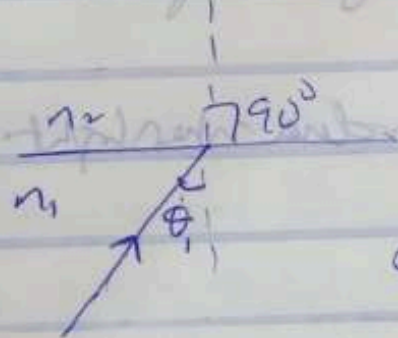 n₂ 90°
n₁
θ₁